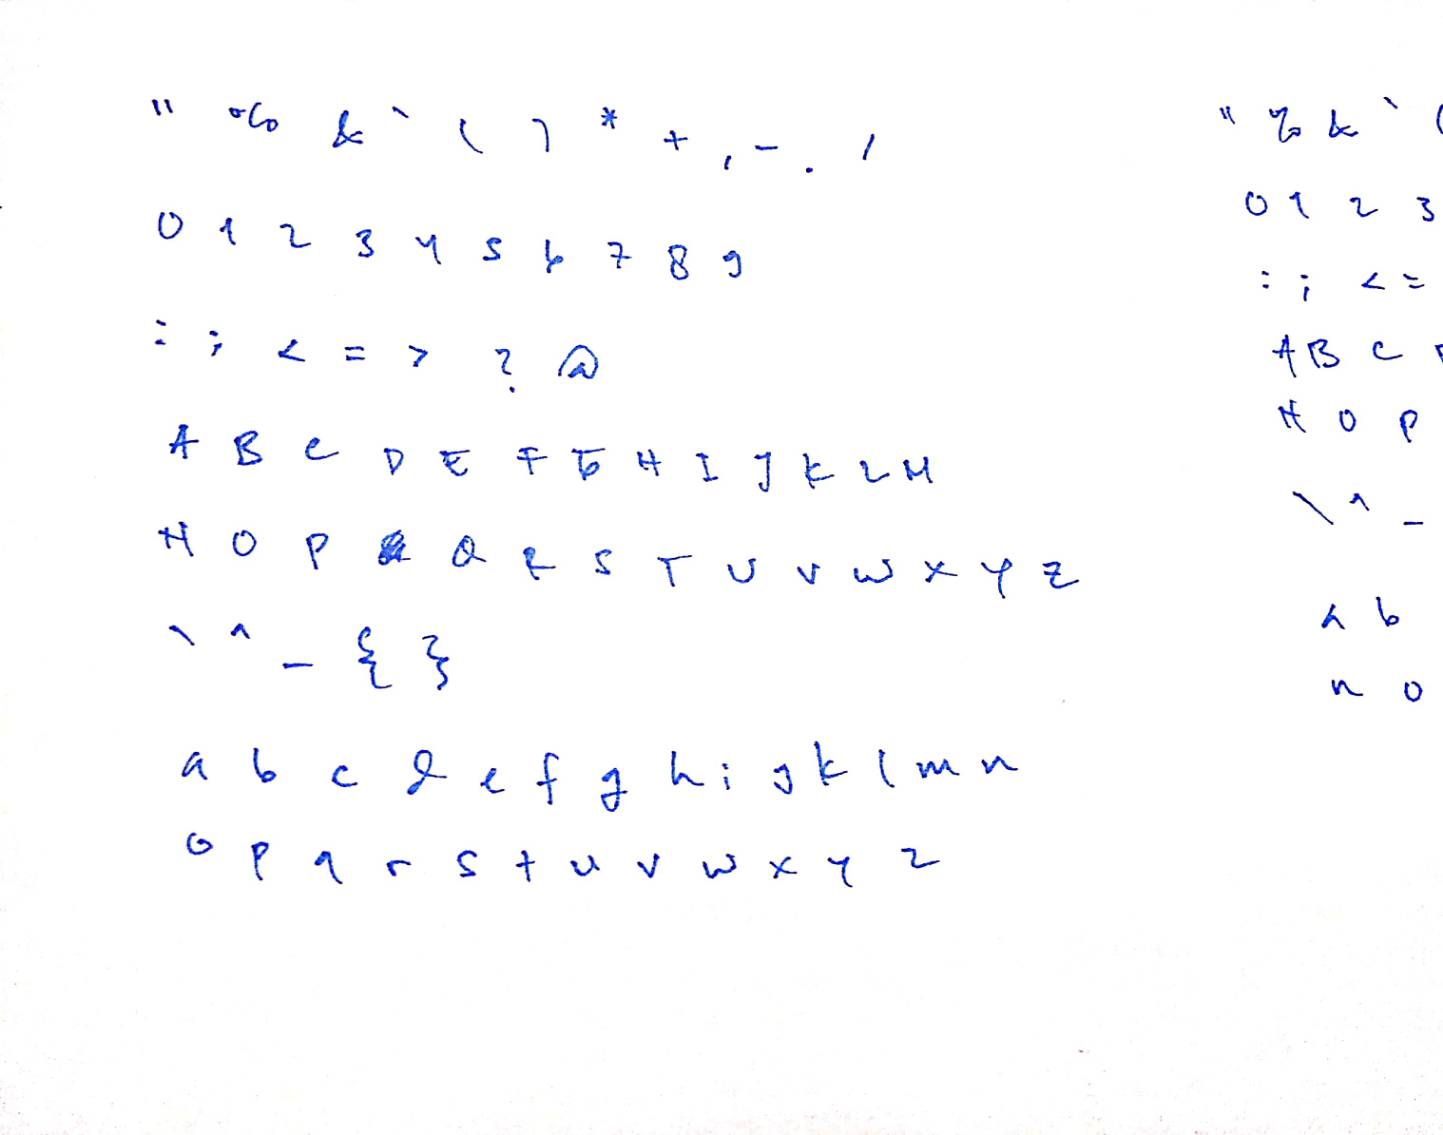 " % & ` ( ) * + , - . /
0 1 2 3 4 5 6 7 8 9
: ; < = > ? @
A B C D E F G H I J K L M
N O P Q R S T U V W X Y Z
\ ^ _ { }
a b c d e f g h i j k l m n
o p q r s t u v w x y z
" % & ` (
0 1 2 3
: ; < =
A B C D
N O P
\ ^ _
a b
n o